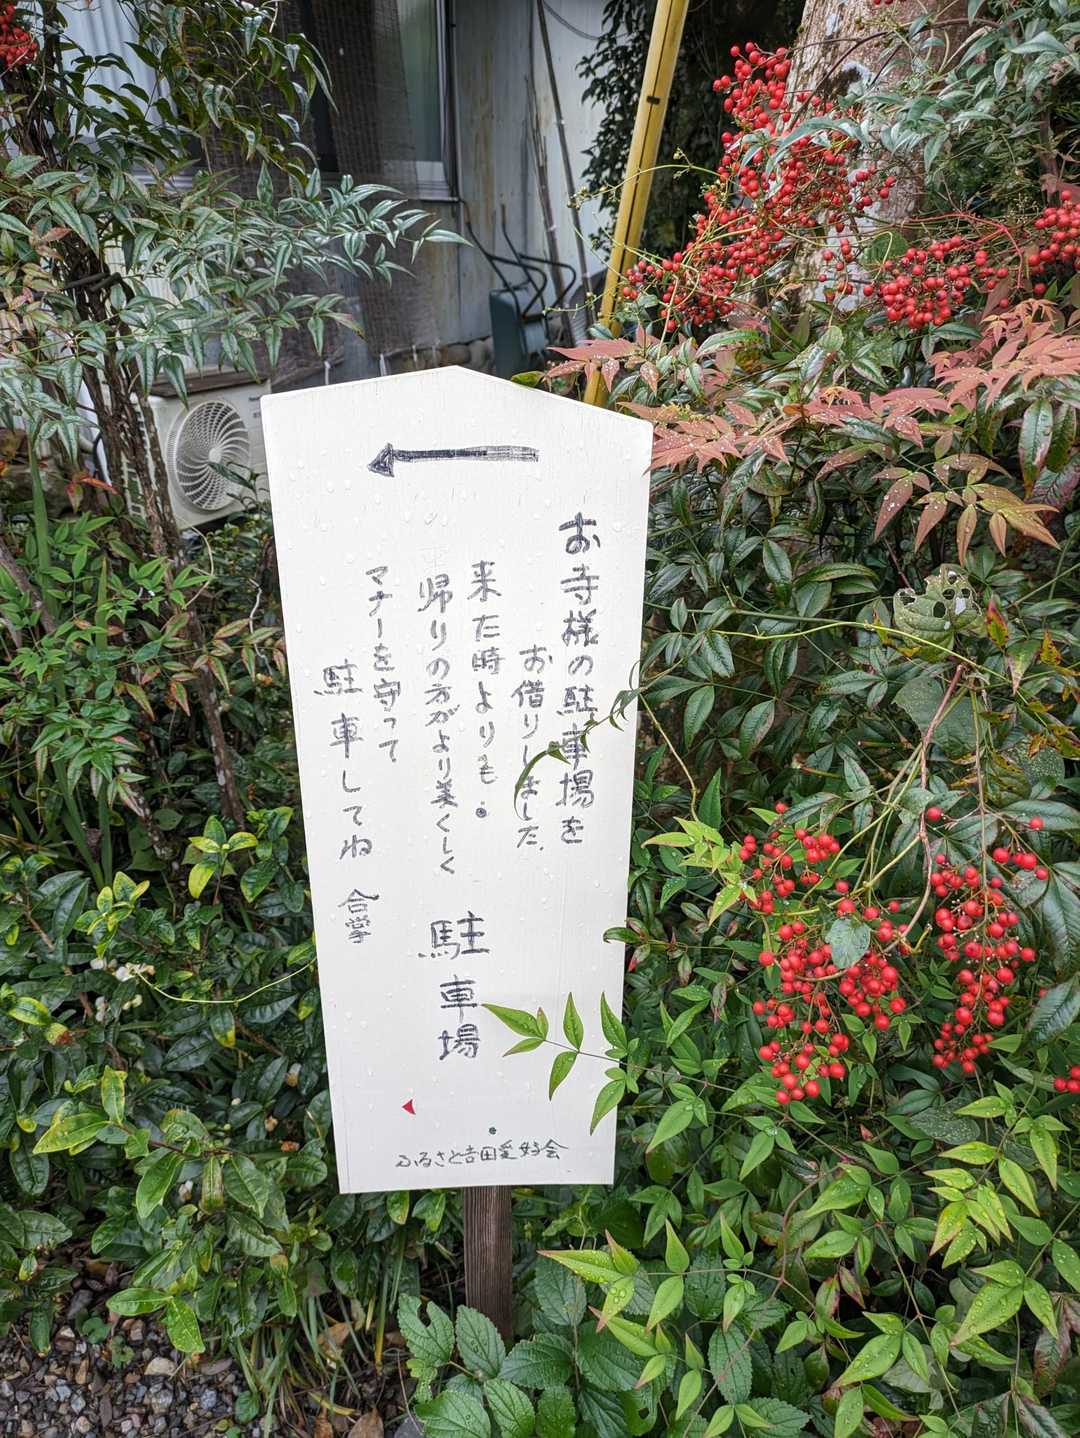 お寺様の駐車場を
お借りしました。
来た時よりも・
帰りの方がより美くしく
マナーを守って
駐車してね 合掌
駐車場
ふるさと吉田愛好会